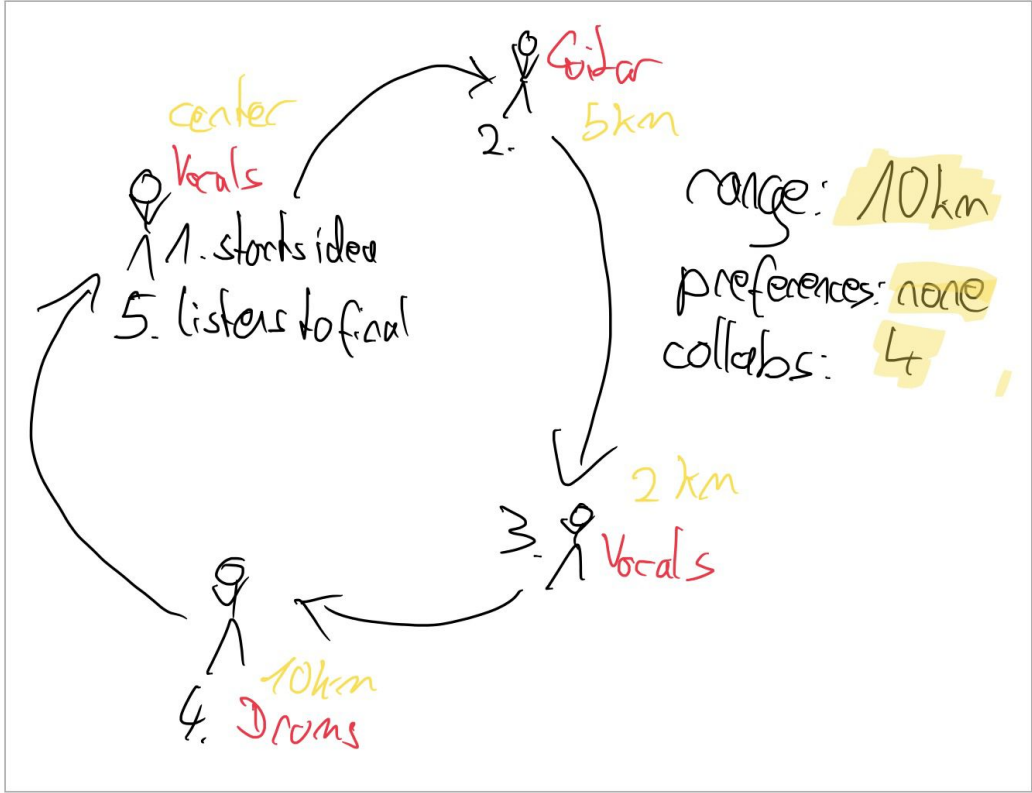 center
Vocals
1. starts idea
5. listens to final
Guitar
2.
5km
range: 10km
preferences: none
collabs: 4
2 km
3.
Vocals
10km
4. Drums